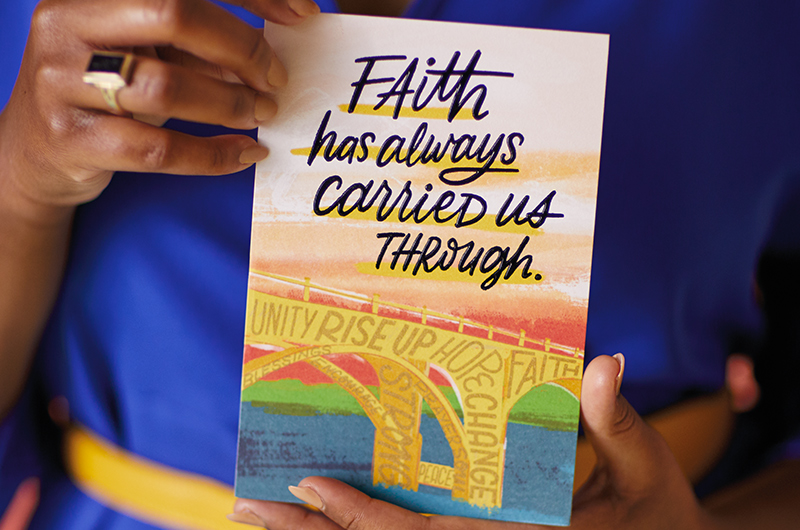 FAith
has always
carried us
THROUGH.
UNITY RISE UP HOPE FAITH
BLESSINGS
STRONG
CHANGE
PEACE